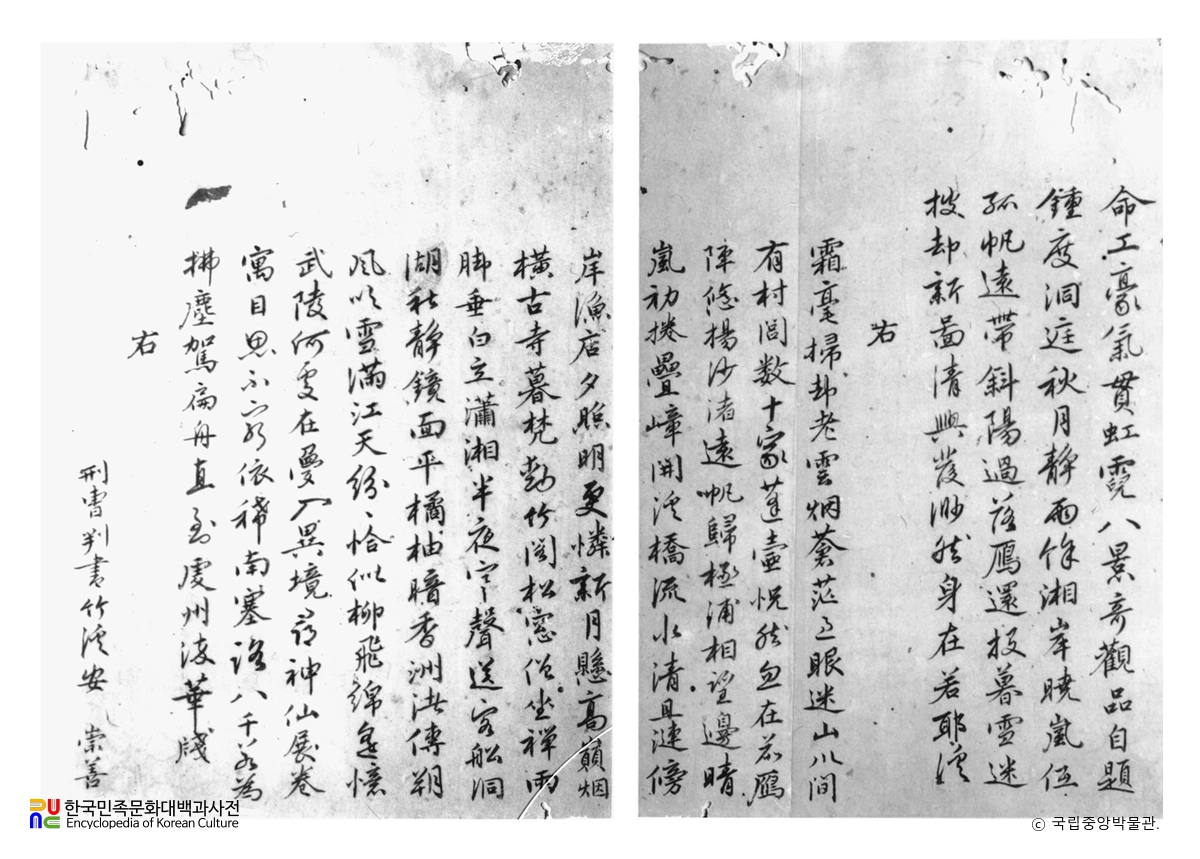 命工豪氣貫虹霓八景奇觀品自題
鍾度洞庭秋月靜雨餘湘岸曉嵐低
孤帆遠帶斜陽過落鴈還投暮雪迷
披却新畵清興發渺然身在若耶溪
右
霜毫掃却老雲烟蒼茫眼迷山川間
有村閭数十家蓬壺怳然忽在茲鴈
陣悠揚沙渚遠帆歸極浦相望邊晴
嵐初捲疊嶂開溪橋流水清且漣傍
岸漁店夕照明更憐新月懸高巓烟
橫古寺暮梵動竹閣松窓僧坐禪雨
脚垂白立瀟湘半夜寒聲送客船洞
湖秋靜鏡面平橘柚暗香洲渚傳朔
風吹雪滿江天紛〻恰似柳飛綿忽憶
武陵何處在夢入異境尋神仙展卷
寓目思不窮依稀南塞路八千若為
拂塵駕扁舟直到虔州浣華牋
右
刑曹判書竹溪安 崇善
한국민족문화대백과사전
Encyclopedia of Korean Culture
ⓒ 국립중앙박물관.